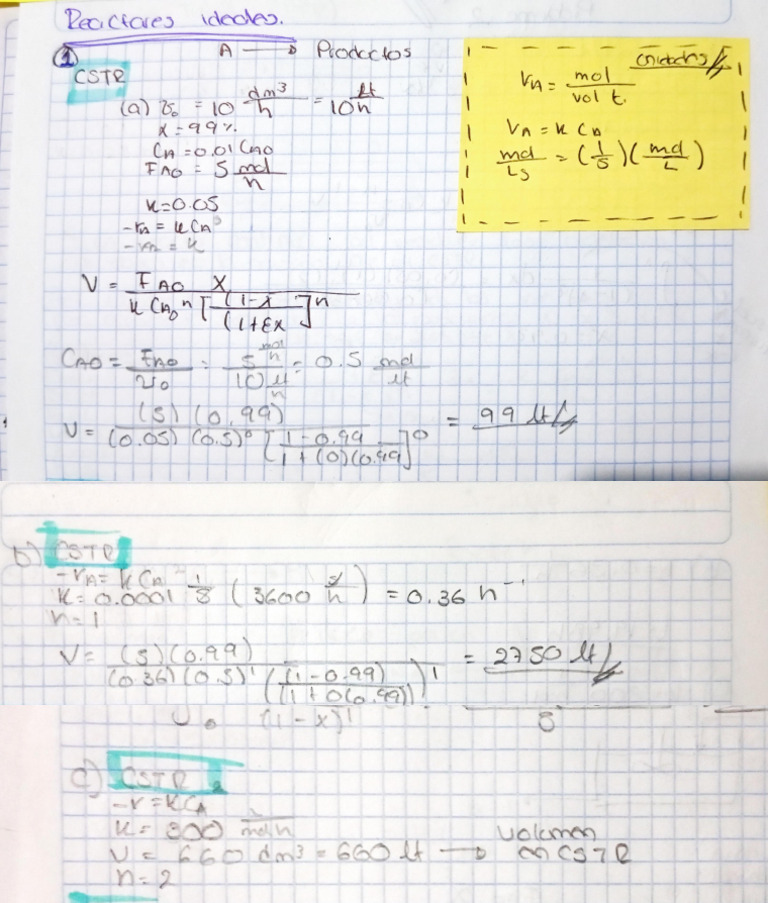 Reactores ideales.
① A → Productos
CSTR
(a) v₀ = 10 dm³/h = 10 lt/h
x = 99%
CA = 0.01 CA0
FA0 = 5 mol/h
k = 0.05
-rA = k CA⁰
-rA = k
unidades
rA = mol/vol t.
rA = k CA
mol/Ls = (1/s)(mol/L)
V = FA0 X / k CA0ⁿ [(1-x/(1+εx]ⁿ
CA0 = FA0/v₀ = 5 mol/h / 10 lt/h = 0.5 mol/lt
V = (5)(0.99) / (0.05)(0.5)⁰ [1-0.99 / 1+(0)(0.99]⁰ = 99 lt
b) CSTR
-rA = k CA
k = 0.0001 1/s (3600 s/h) = 0.36 h⁻¹
n = 1
V = (5)(0.99) / (0.36)(0.5)¹ ((1-0.99) / (1+0(0.99)))¹ = 2750 lt
(1-x)¹
c) CSTR
-r = k CA
k = 300
V = 660 dm³ = 660 lt → volumen en CSTR
n = 2